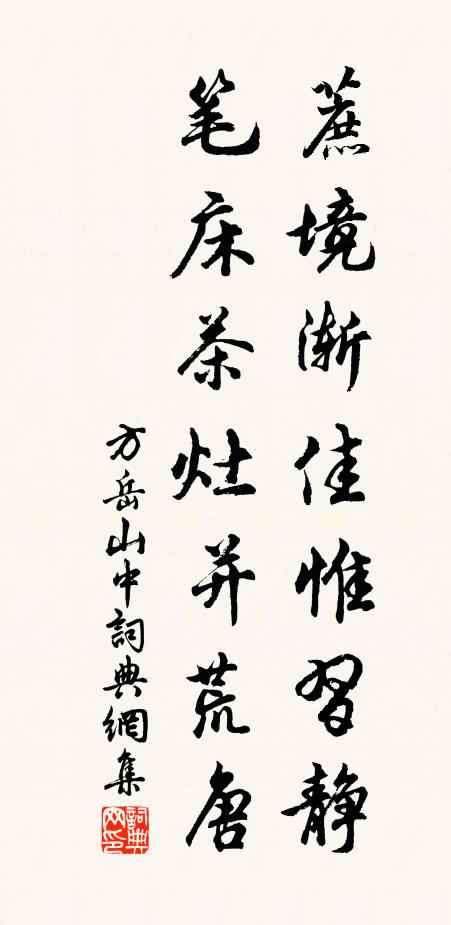 蔗境渐佳惟習静
笔床茶灶并荒唐
方岳山中詞典網集
詞典网印